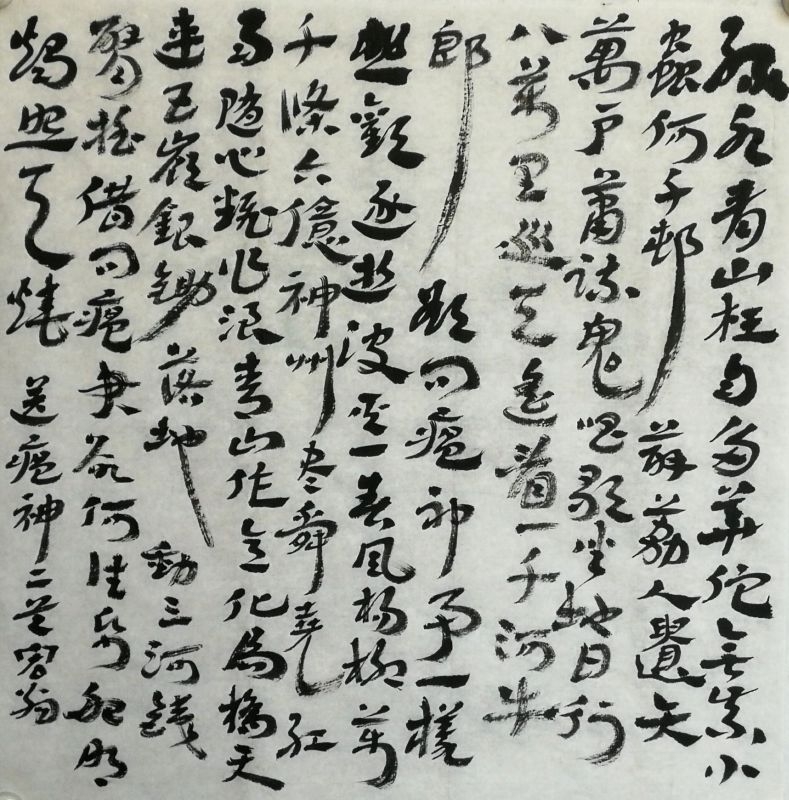 綠水青山枉自多華佗無奈小
蟲何千邨薜荔人遺矢
萬戶蕭疏鬼唱歌坐地日行
八萬里巡天遙看一千河牛
郎欲問瘟神事一樣
悲歡逐逝波其一春風楊柳萬
千條六億神州尽舜堯紅
雨隨心翻作浪青山作意化爲橋天
連五嶺銀鋤落地動三河鐵
臂搖借問瘟君欲何往紙船明
燭照天燒送瘟神二首